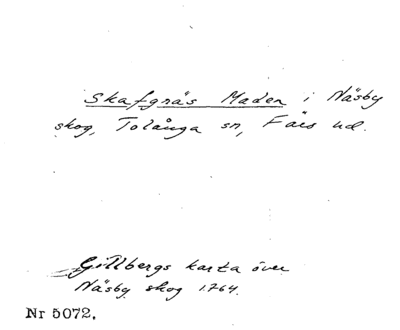 Skafgräs Maden i Näsby
skog, Tolånga sn, Färs hd.
Gillbergs karta över
Näsby skog 1764.
Nr 5072.